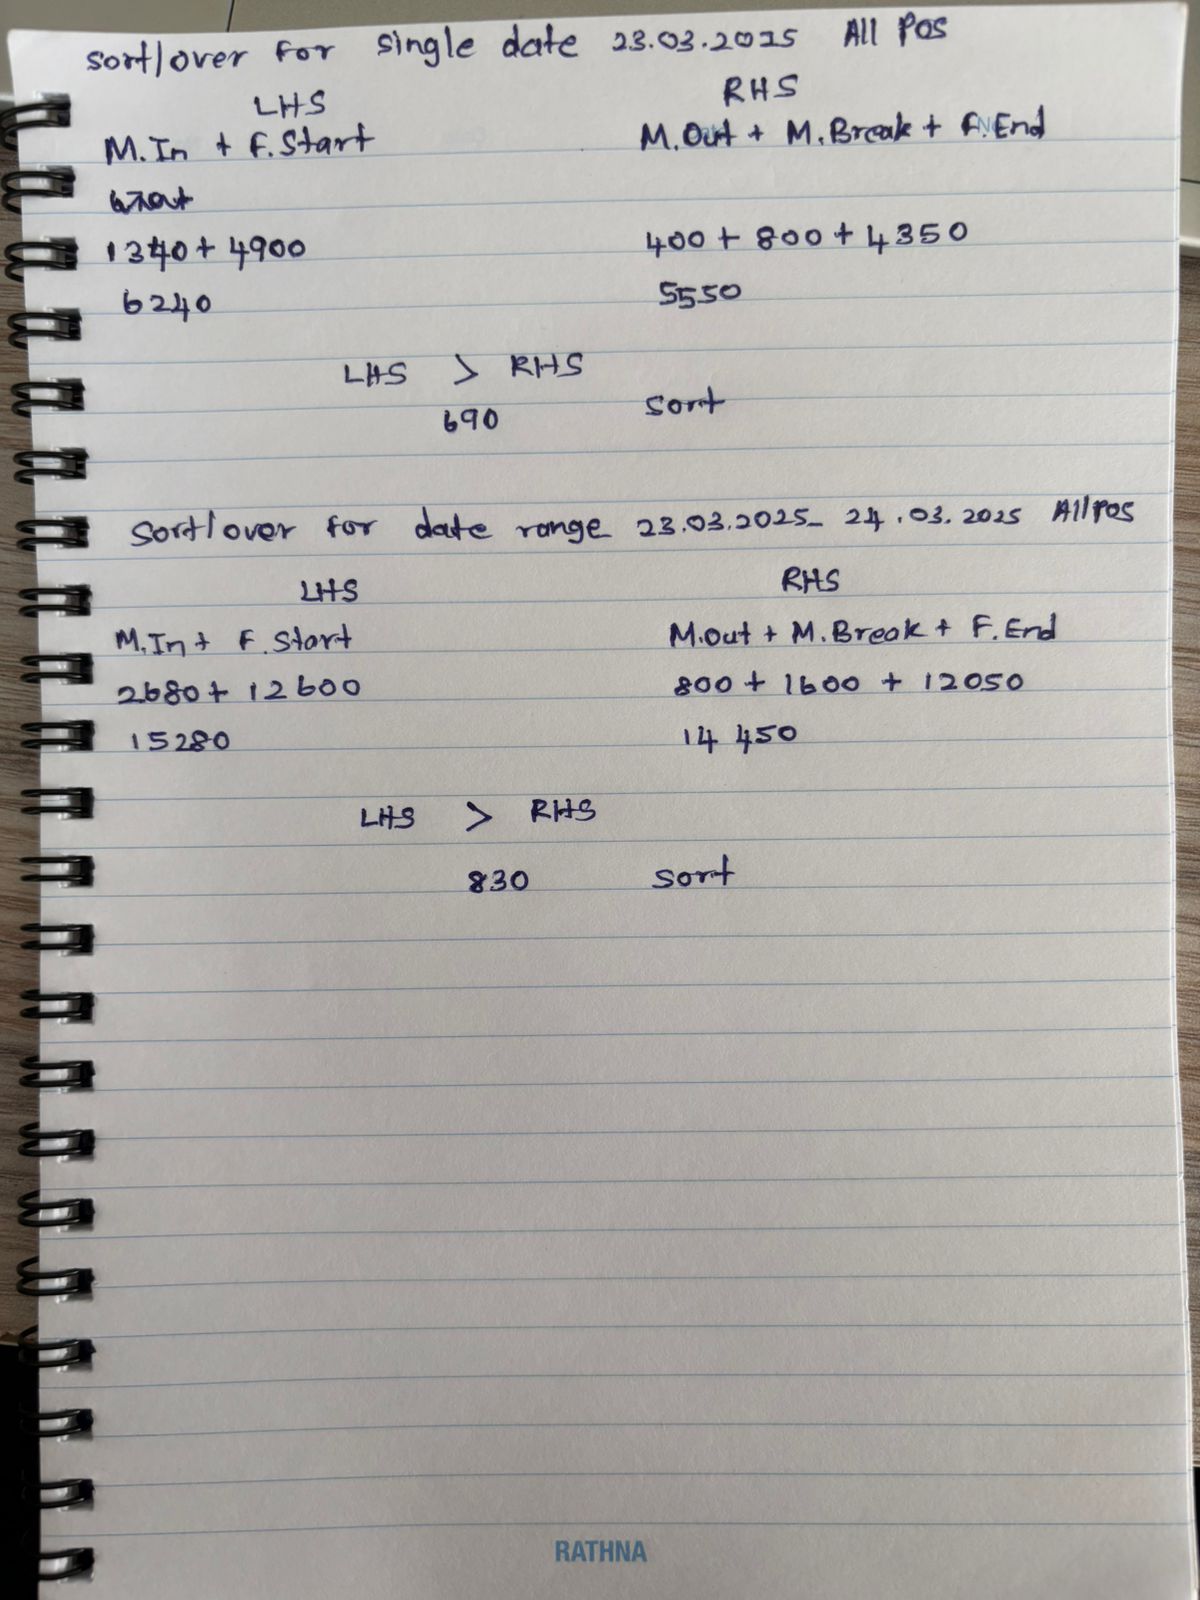 sort/over for single date 23.03.2025 All Pos
LHS RHS
M.In + F.Start M.Out + M.Break + F.End
1340 + 4900 400 + 800 + 4350
6240 5550
LHS > RHS
690 sort
sort/over for date range 23.03.2025- 24.03.2025 All Pos
LHS RHS
M.In + F.Start M.Out + M.Break + F.End
2680 + 12600 800 + 1600 + 12050
15280 14 450
LHS > RHS
830 sort
RATHNA